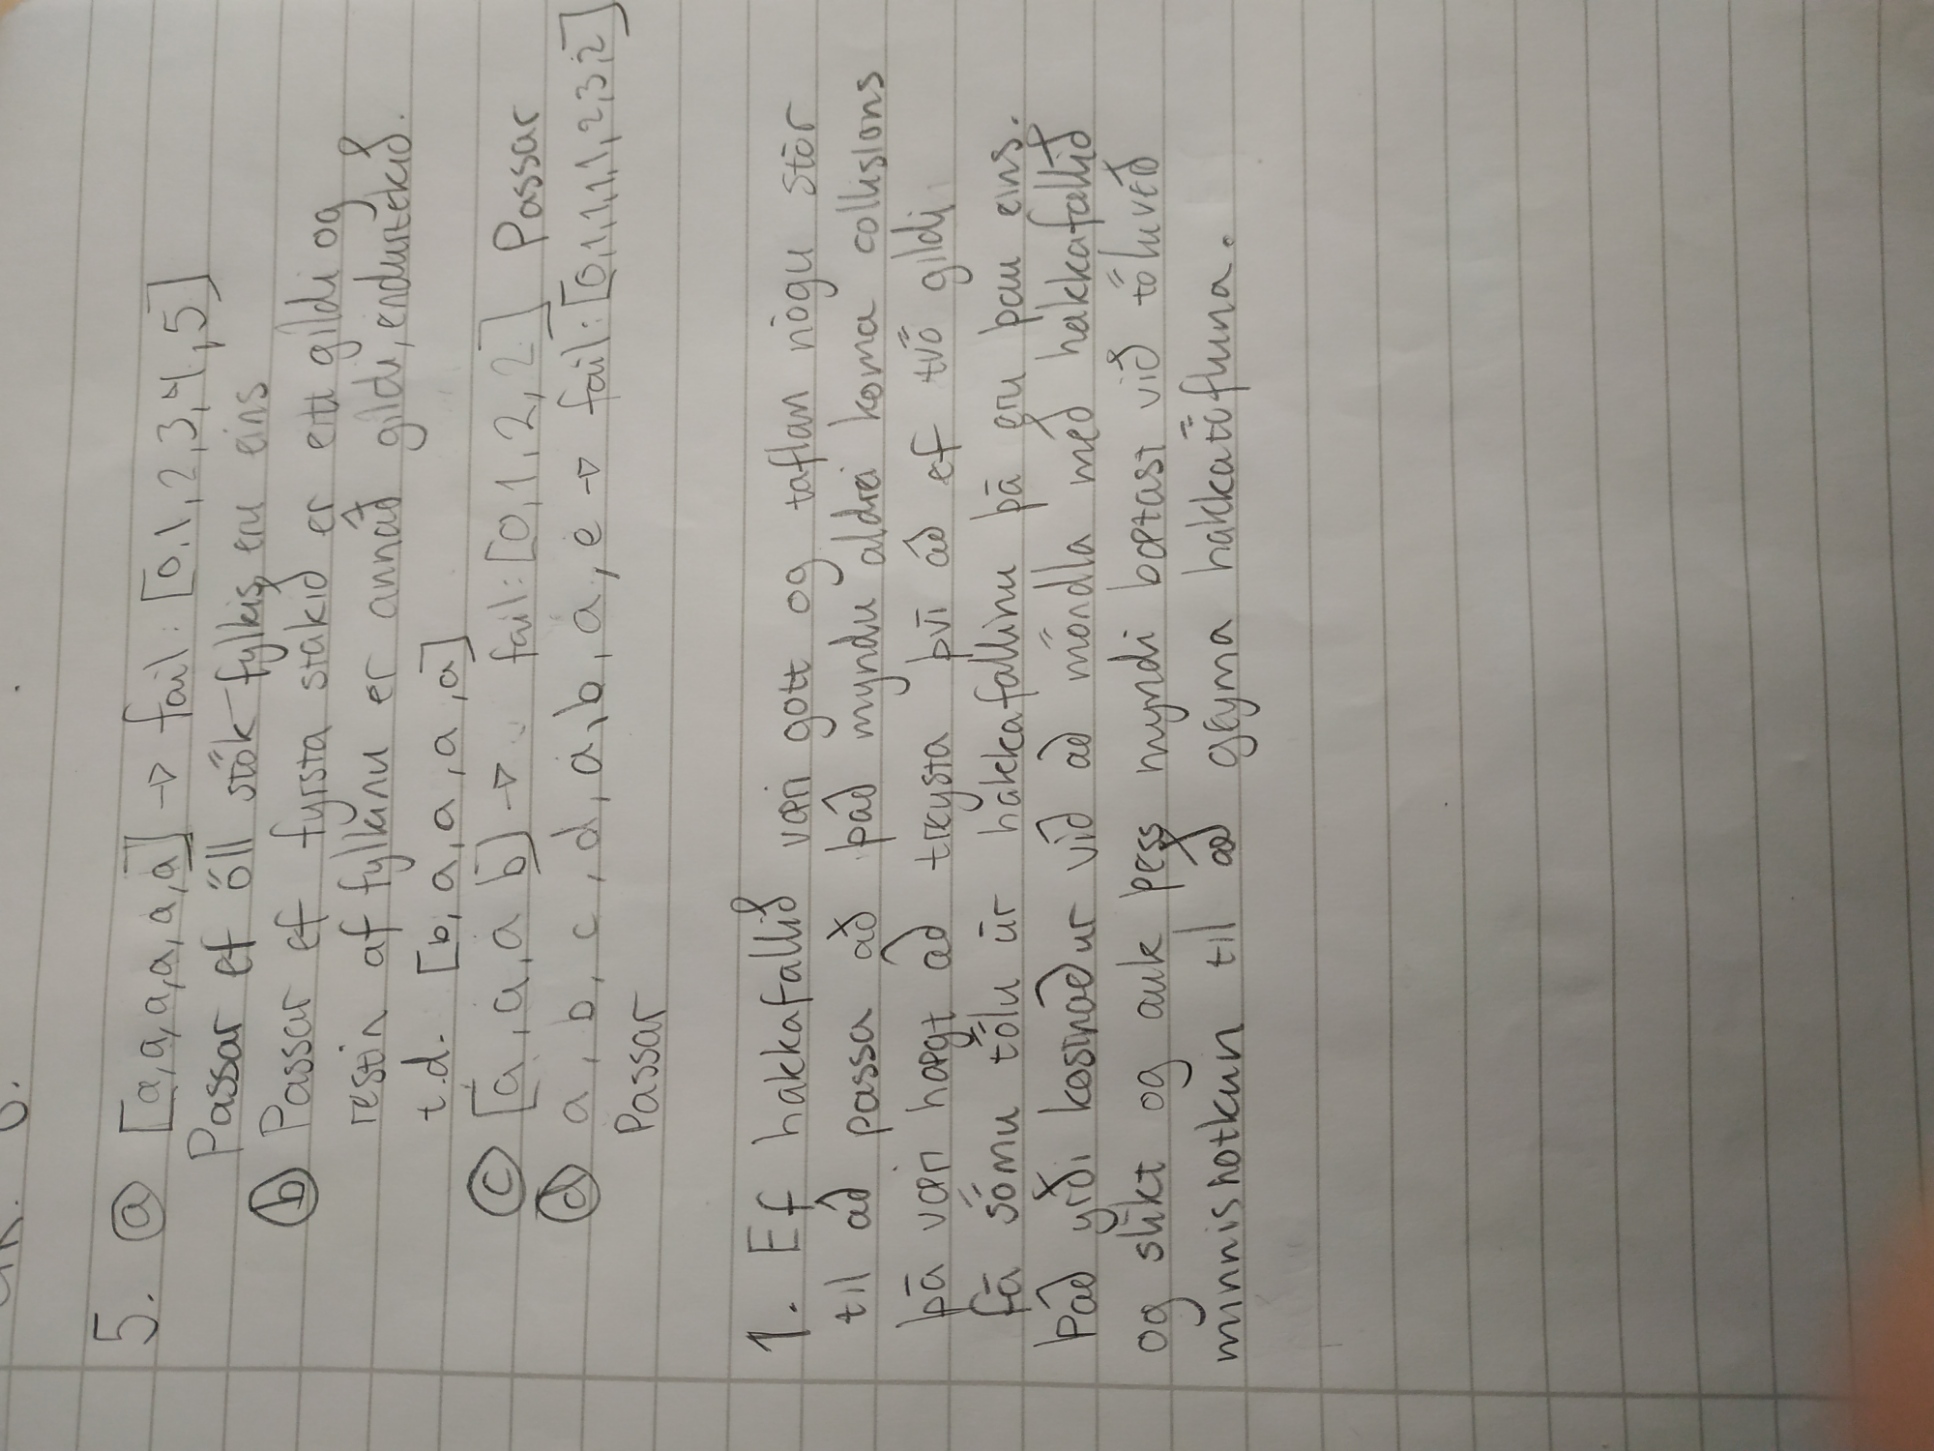 5. ⓐ [a, a, a, a, a, a] → fail: [0, 1, 2, 3, 4, 5]
Passar ef öll stök fylkis eru eins
ⓑ Passar ef fyrsta stakið er eitt gildi og
restin af fylkinu er annað gildi, endurtekið.
t.d. [b, a, a, a, a]
ⓒ [a, a, a b] → fail: [0, 1, 2, 2] Passar
ⓓ a, b, c, d, a, b, a, e → fail: [0, 1, 1, 1, 1, 2, 3, 2]
Passar
1. Ef hakkafallið væri gott og taflan nógu stór
til að passa að það myndu aldrei koma collisions
þá væri hægt að treysta því að ef tvö gildi
fá sömu tölu úr hakkafallinu þá eru þau eins.
Það yrði kostnaður við að möndla með hakkafallið
og slíkt og auk þess myndi bætast við töluverð
minnisnotkun til að geyma hakkatöfluna.